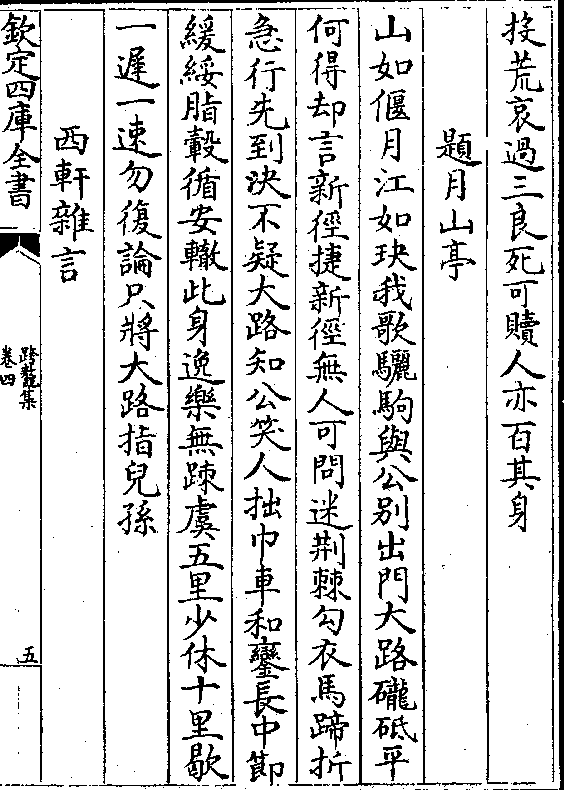 投荒哀過三良死可贖人亦百其身
題月山亭
山如偃月江如玦我歌驪駒與公别出門大路礲砥平
何得却言新徑捷新徑無人可問迷荆棘勾衣馬蹄折
急行先到决不疑大路知公笑人拙巾車和鑾長中節
緩綏脂轂循安轍此身逸樂無踈虞五里少休十里歇
一遲一速勿復論只將大路指兒孫
西軒雜言
欽定四庫全書
跨鼇集
卷四
五